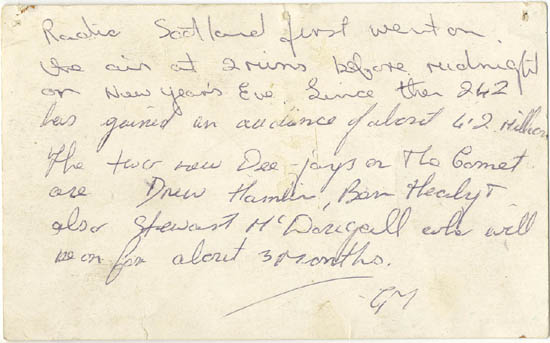 Radio Scotland first went on
the air at 2 mins before midnight
on New Year's Eve. Since then 242
has gained an audience of about 4.2 million
The two new Dee-jays on The Comet
are Drew Hamlin, Ben Healy +
also Stewart McDougall who will
be on for about 3 months.
GM